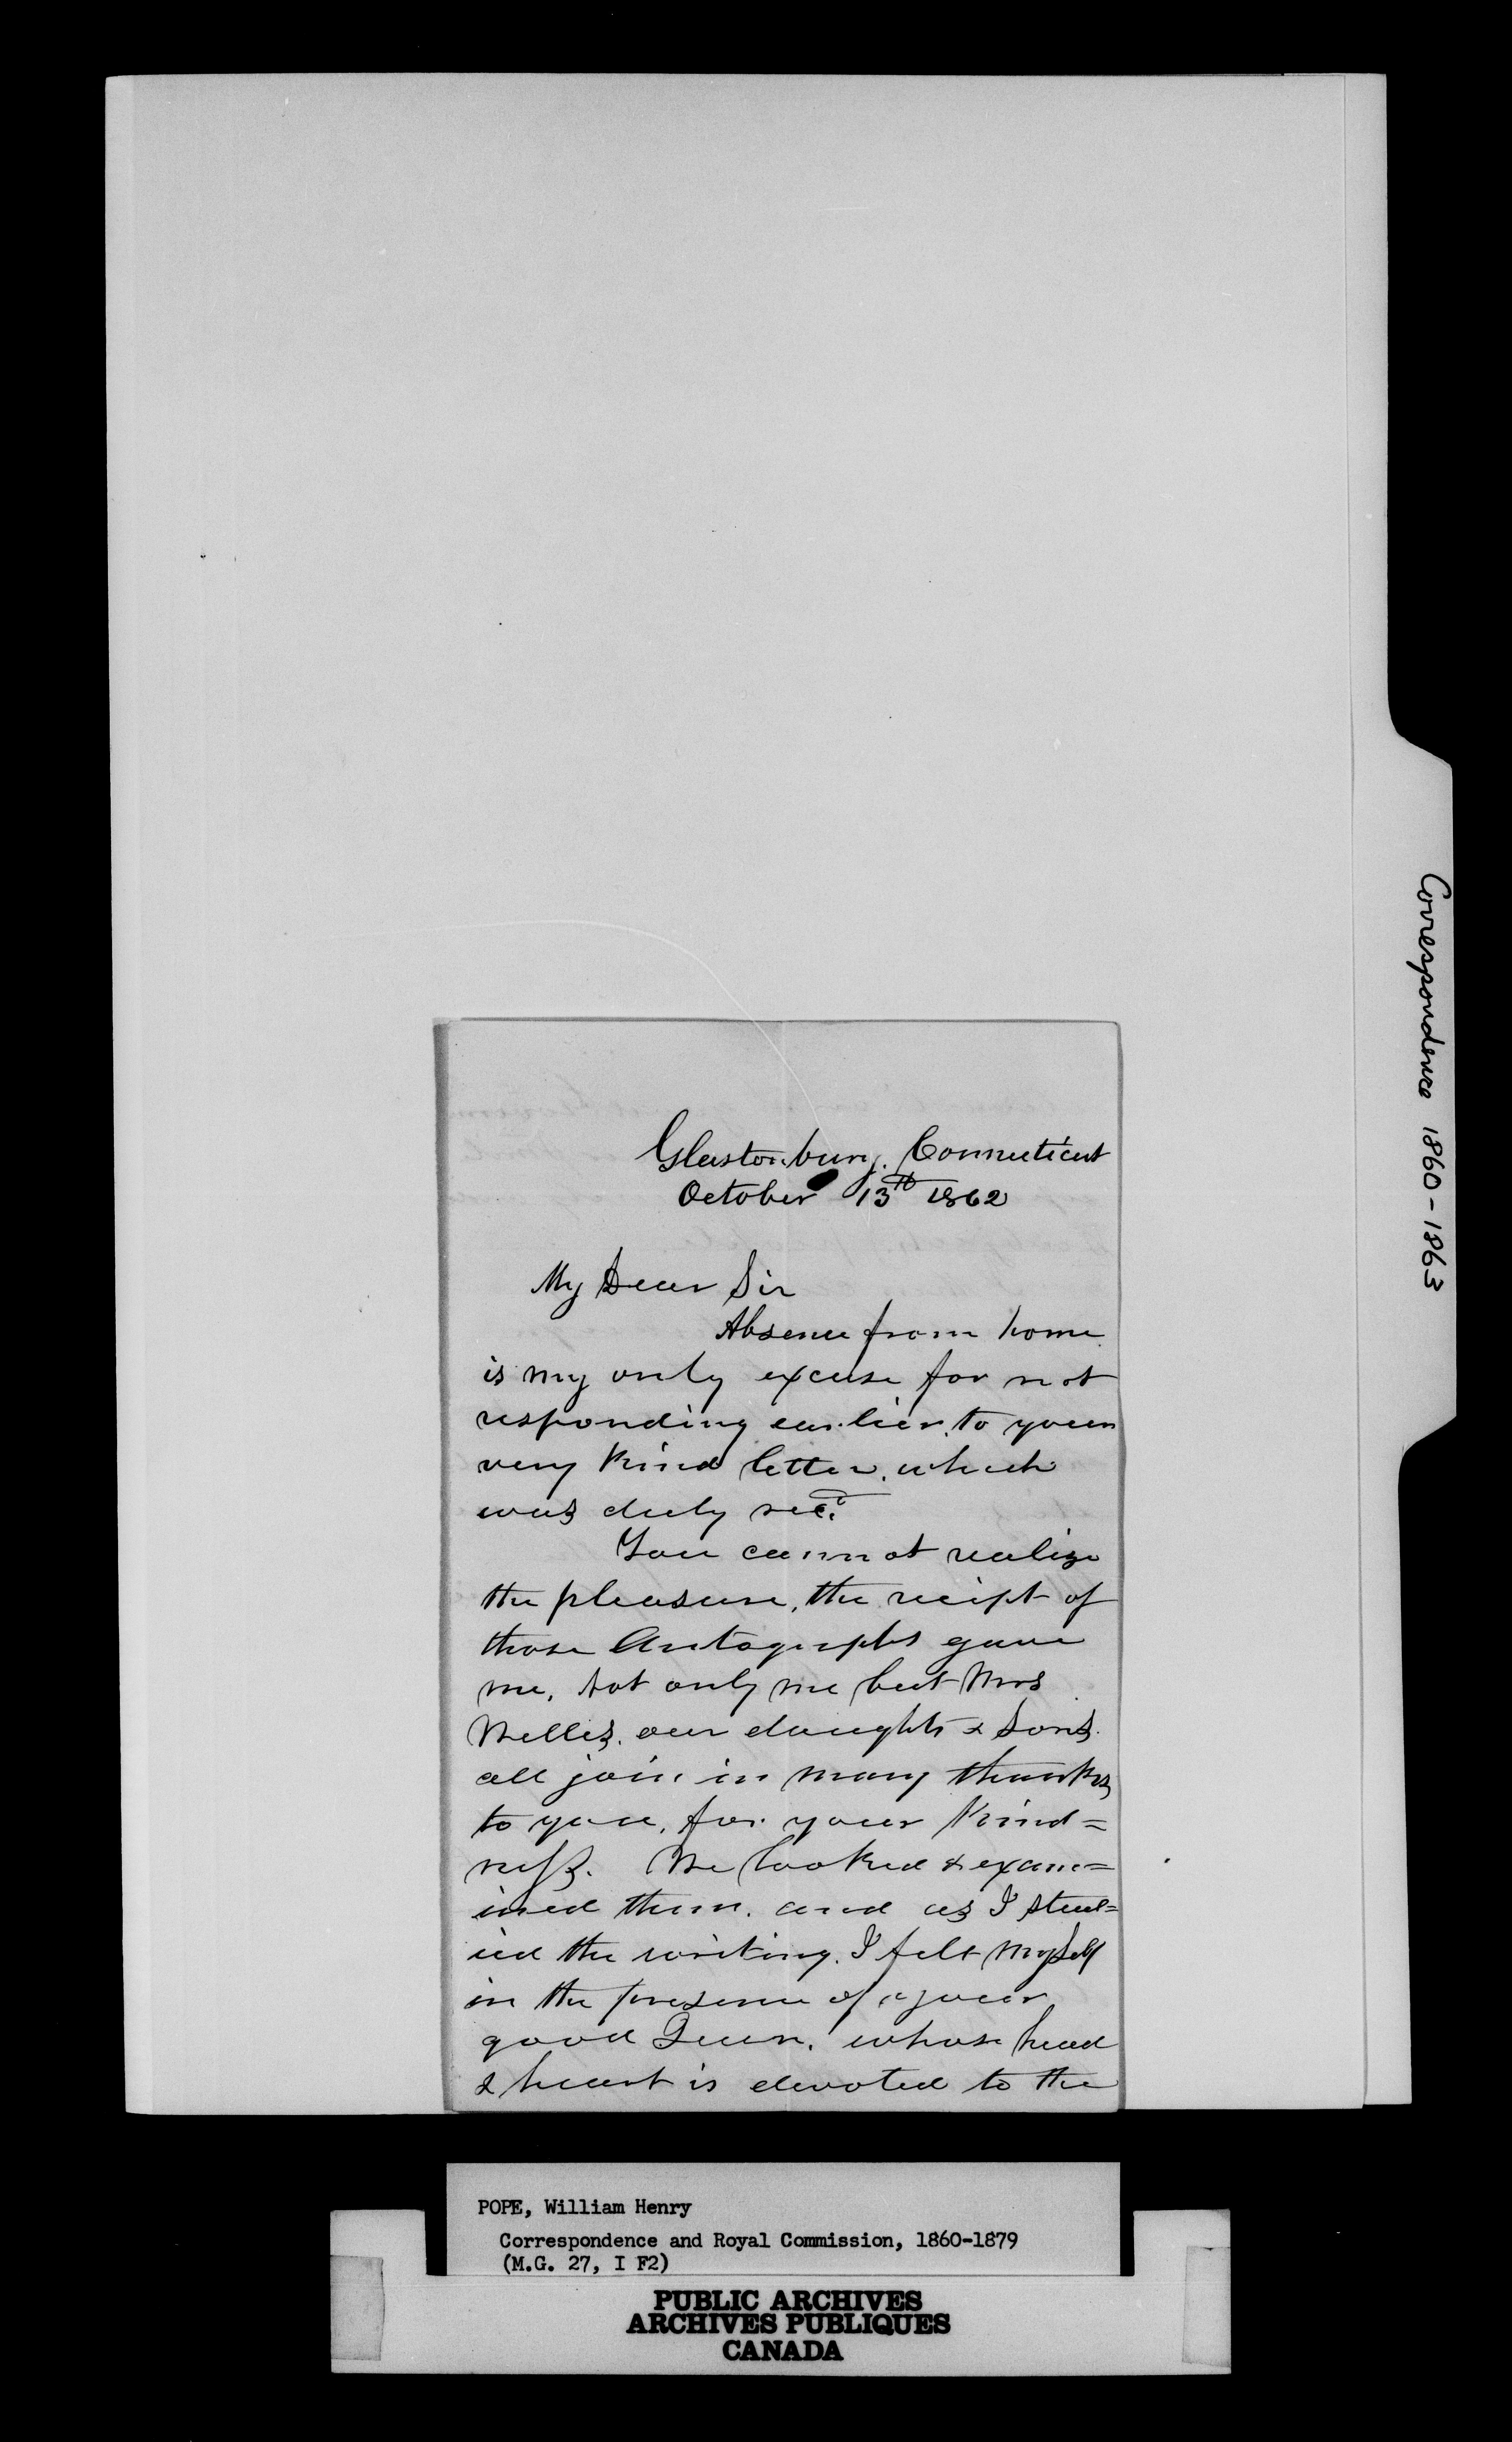 Correspondence 1860-1863
Glastonbury. Connecticut
October 13th 1862
My Dear Sir
Absence from home
is my only excuse for not
responding earlier, to your
very kind letter, which
was duly recd.
You cannot realize
the pleasure, the reciept of
those Autographs gave
me, not only me but Mrs
Welles, our daughtr & Sons.
all join in many thanks
to you, for your kind=
ness. We looked & exam=
ined them, and as I stud=
ied the writing, I felt myself
in the presence of your
good Queen, whose head
& heart is devoted to the
POPE, William Henry
Correspondence and Royal Commission, 1860-1879
(M.G. 27, I F2)
PUBLIC ARCHIVES
ARCHIVES PUBLIQUES
CANADA